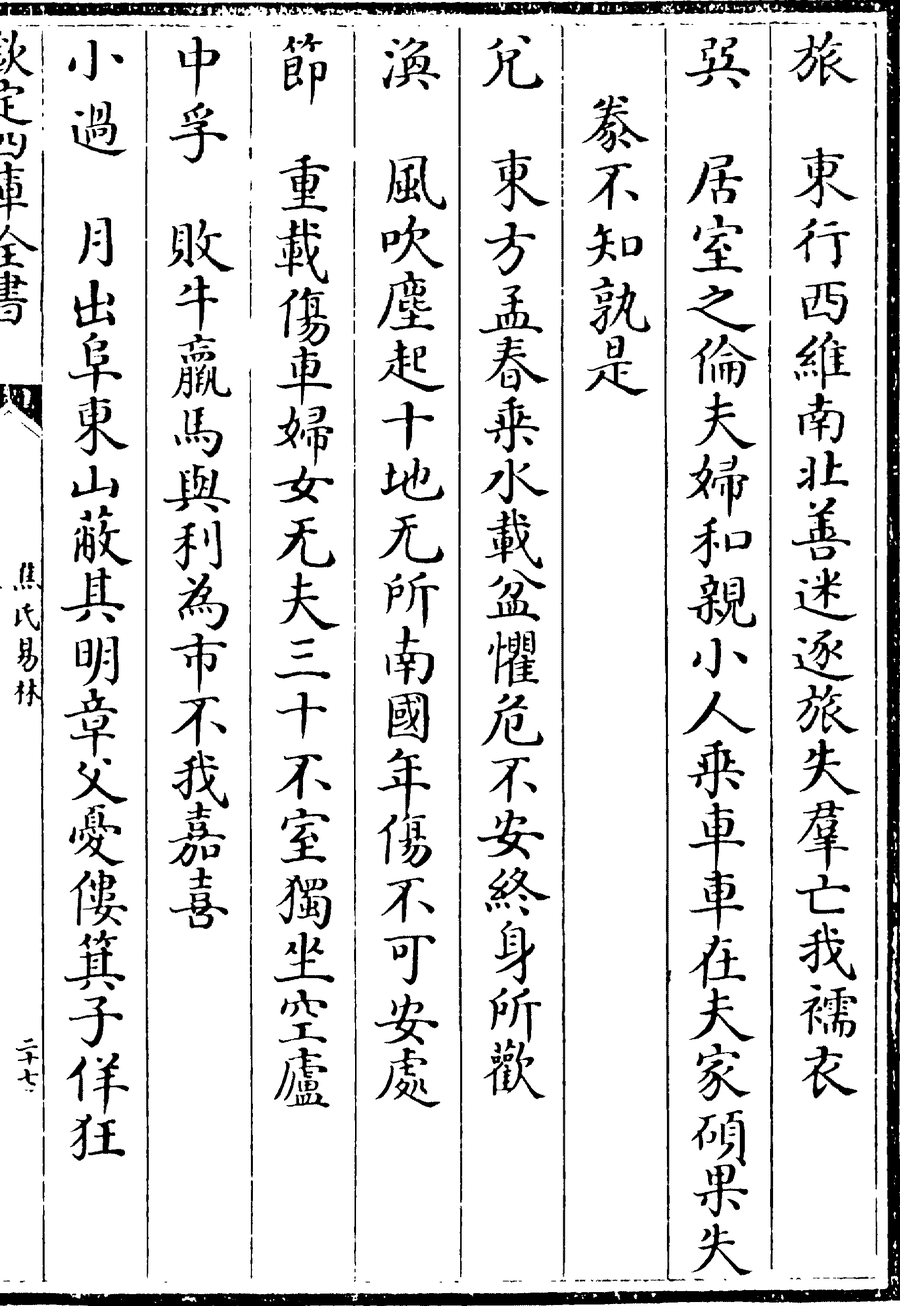 旅　東行西維南北善迷逐旅失羣亡我襦衣
巽　居室之倫夫婦和親小人乗車車在夫家碩果失
豢不知孰是
兌　東方孟春乗水載盆懼危不安終身所歡
渙　風吹塵起十地无所南國年傷不可安處
節　重載傷車婦女无夫三十不室獨坐空廬
中孚　敗牛羸馬與利為市不我嘉喜
小過　月出阜東山蔽其明章父憂僂箕子佯狂
欽定四庫全書
焦氏易林
二十七